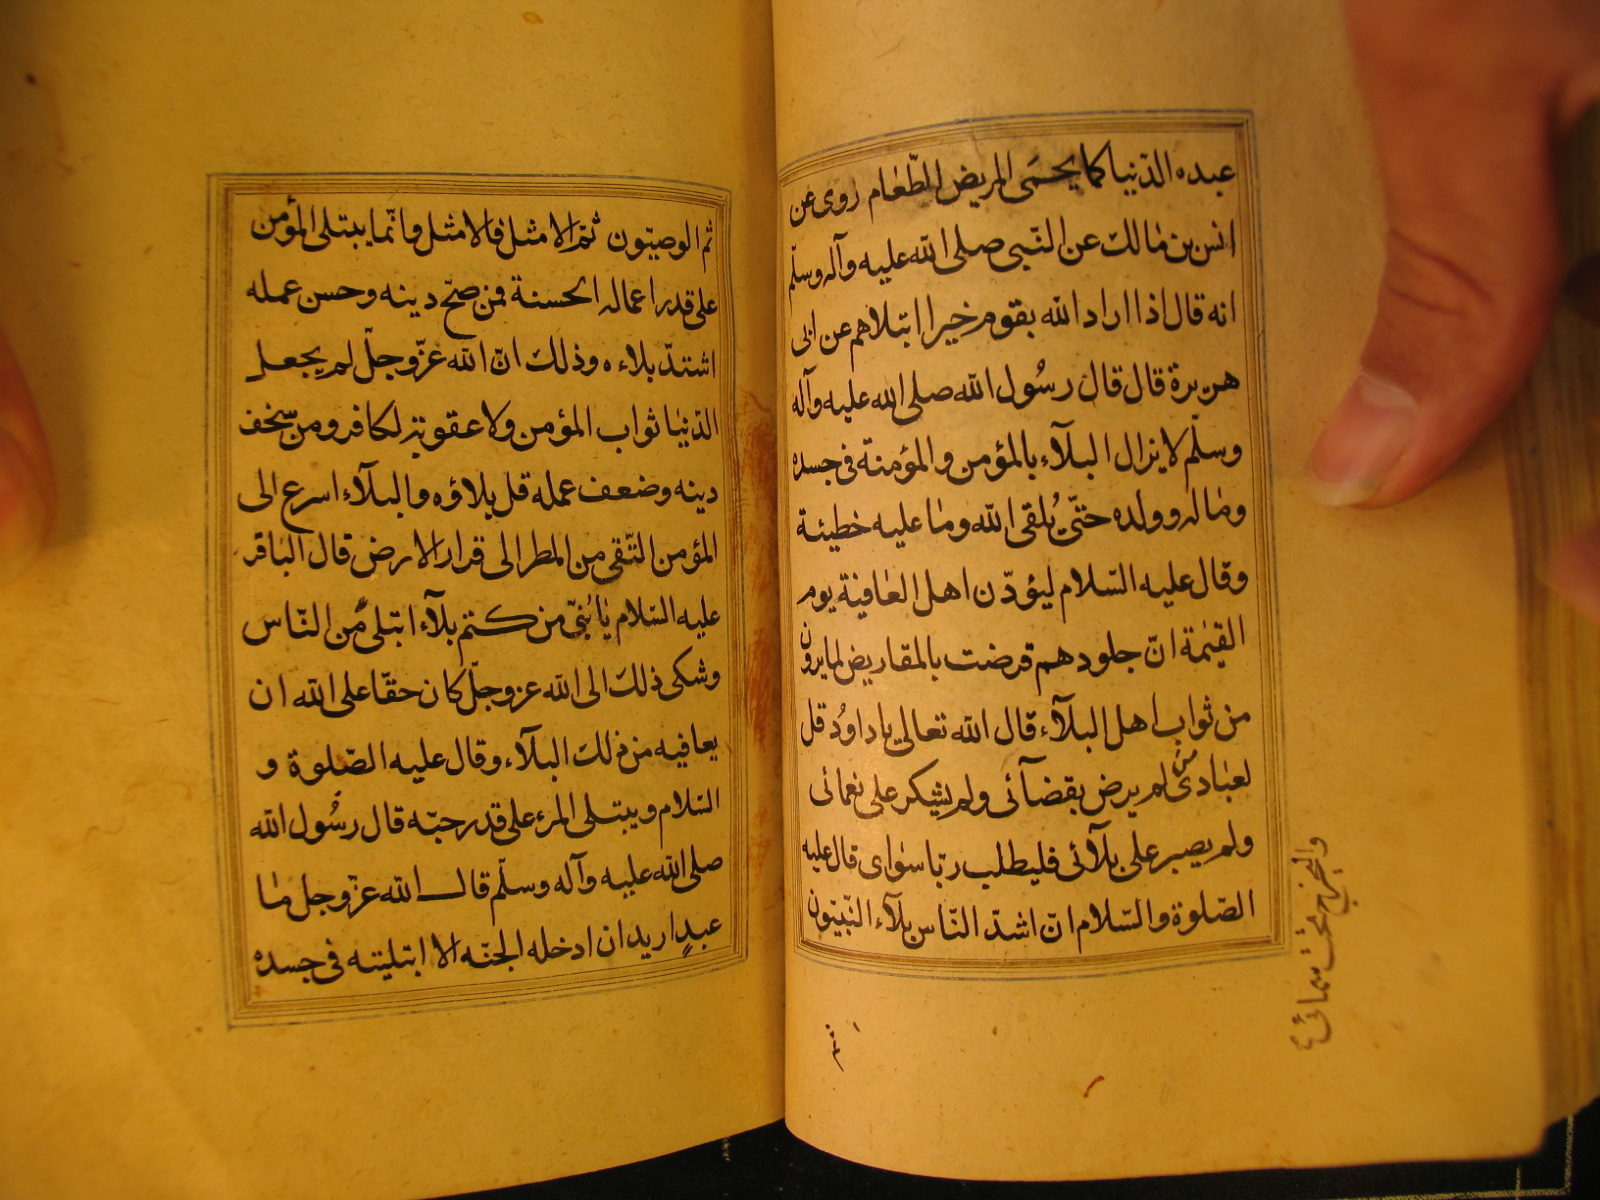 عبده الدّنيا كما يحمى المريض الطّعام روى عن
انس بن مالك عن النّبى صلى الله عليه وآله وسلّم
انه قال اذا اراد الله بقوم خيرا ابتلاهم عن ابى
هريرة قال قال رسُول الله صلى الله عليه وآله
وسلّم لا يزال البلآء بالمؤمن والمؤمنة فى جسده
وماله وولده حتّى يُلقى الله وما عليه خطيئة
وقال عليه السّلام ليؤدّن اهل العافية يوم
القيٰمة انّ جلودهم قرضت بالمقاريض لما يرون
من ثواب اهل البلآء قال الله تعالى يا داوُد قل
لعبادى من لم يرض بقضآئى ولم يشكر على نعمائى
ولم يصبر على بلآئى فليطلب ربّا سوٰاى قال عليه
الصّلوة والسّلام انّ اشدّ النّاس بلآء النّبيّون
ثم
وليخرج من تحت سمائى
ثم الوصيّون ثمّ الامثل فالامثل وانّما يبتلى المؤمن
على قدر اعماله الحسنة فمن صحّ دينه وحسن عمله
اشتدّ بلاءه وذلك انّ الله عزّ وجلّ لم يجعل
الدّنيا ثواب المؤمن ولا عقوبة لكافر ومن سخف
دينه وضعف عمله قل بلاؤه والبلآء اسرع الى
المؤمن التّقى من المطر الى قرار الارض قال الباقر
عليه السّلام يا بُنىّ من كتم بلآء ابتلى من النّاس
وشكى ذلك الى الله عز وجلّ كان حقّا على الله ان
يعافيه من ذلك البلآء وقال عليه الصّلوة و
السّلام ويبتلى المرء على قدر حبّه قال رسُول الله
صلى الله عليه وآله وسلّم قال الله عزّ وجل ما
عبدٍ اريد ان ادخله الجنّه الا ابتليته فى جسده